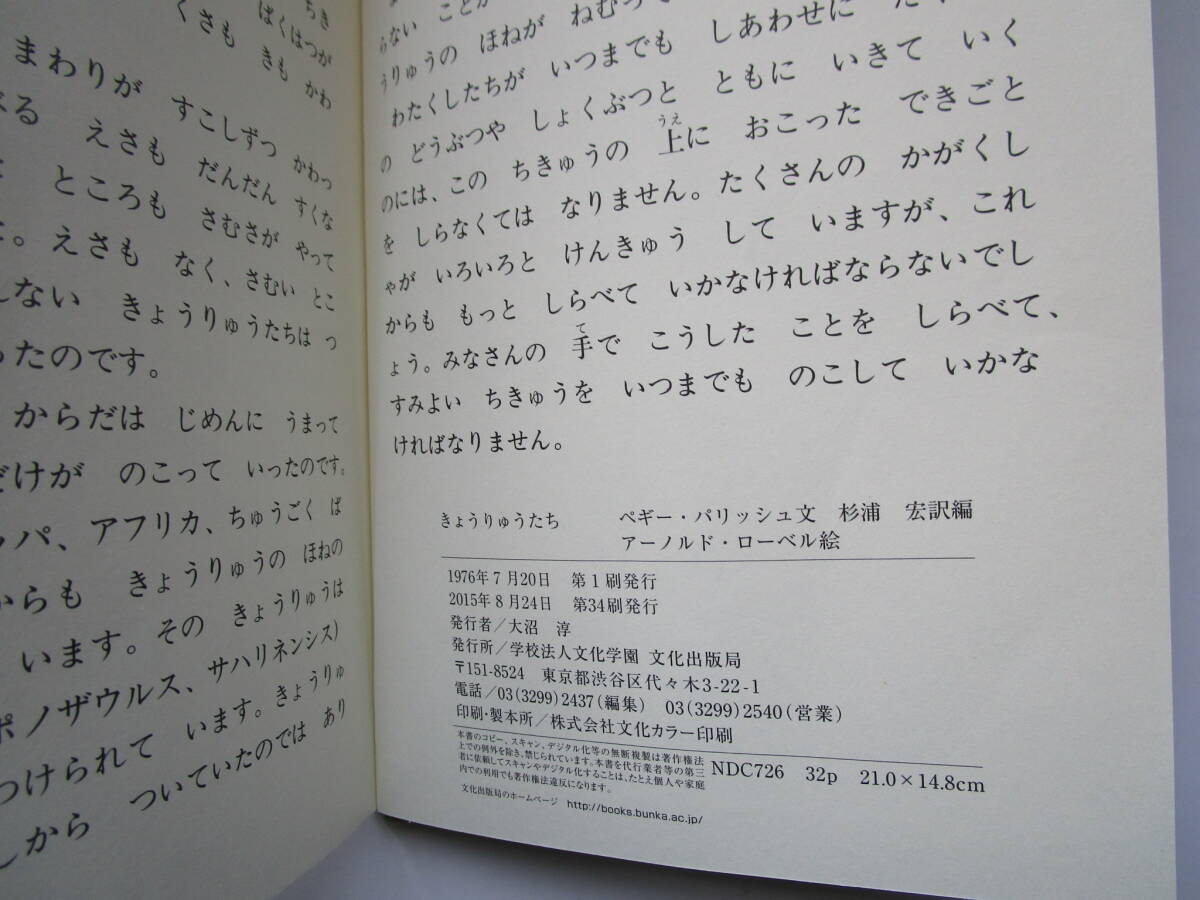 ちき
ばくはつが
くさも きも かわ
まわりが すこしずつ かわっ
べる えさも だんだん すくな
ところも さむさが やって
。えさも なく、さむい とこ
しない きょうりゅうたちは つ
ったのです。
からだは じめんに うまって
だけが のこって いったのです。
ッパ、アフリカ、ちゅうごく ば
からも きょうりゅうの ほねの
います。その きょうりゅうは
ポノザウルス、サハリネンシス)
つけられて います。きょうりゅ
しから ついていたのでは あり
らない ことが
うりゅうの ほねが ねむって
わたくしたちが いつまでも しあわせに た
の どうぶつや しょくぶつと ともに いきて いく
のには、この ちきゅうの 上に おこった できごと
うえ
を しらなくては なりません。たくさんの かがくし
ゃが いろいろと けんきゅう して いますが、これ
からも もっと しらべて いかなければならないでし
ょう。みなさんの 手で こうした ことを しらべて、
て
すみよい ちきゅうを いつまでも のこして いかな
ければなりません。
きょうりゅうたち ペギー・パリッシュ文 杉浦 宏訳編
アーノルド・ローベル絵
1976年7月20日 第1刷発行
2015年8月24日 第34刷発行
発行者/大沼 淳
発行所/学校法人文化学園 文化出版局
〒151-8524 東京都渋谷区代々木3-22-1
電話/03(3299)2437(編集) 03(3299)2540(営業)
印刷・製本所/株式会社文化カラー印刷
本書のコピー、スキャン、デジタル化等の無断複製は著作権法
上での例外を除き、禁じられています。本書を代行業者等の第三
者に依頼してスキャンやデジタル化することは、たとえ個人や家庭
内での利用でも著作権法違反になります。
NDC726 32p 21.0×14.8cm
文化出版局のホームページ http://books.bunka.ac.jp/